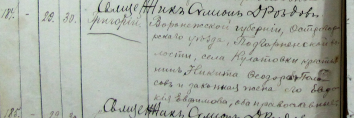 187. - 29. 30. Священникъ Симеонъ Дроздовъ
Григорій, Воронежской губерніи, Острогож
скаго уѣзда, Подгоренской во
лости, села Крестья
нинъ Никита Ѳеодоровъ
и законная жена его Евдо
кія Евфимова, оба православные
185. - 29. Священникъ Симеонъ Дроздовъ